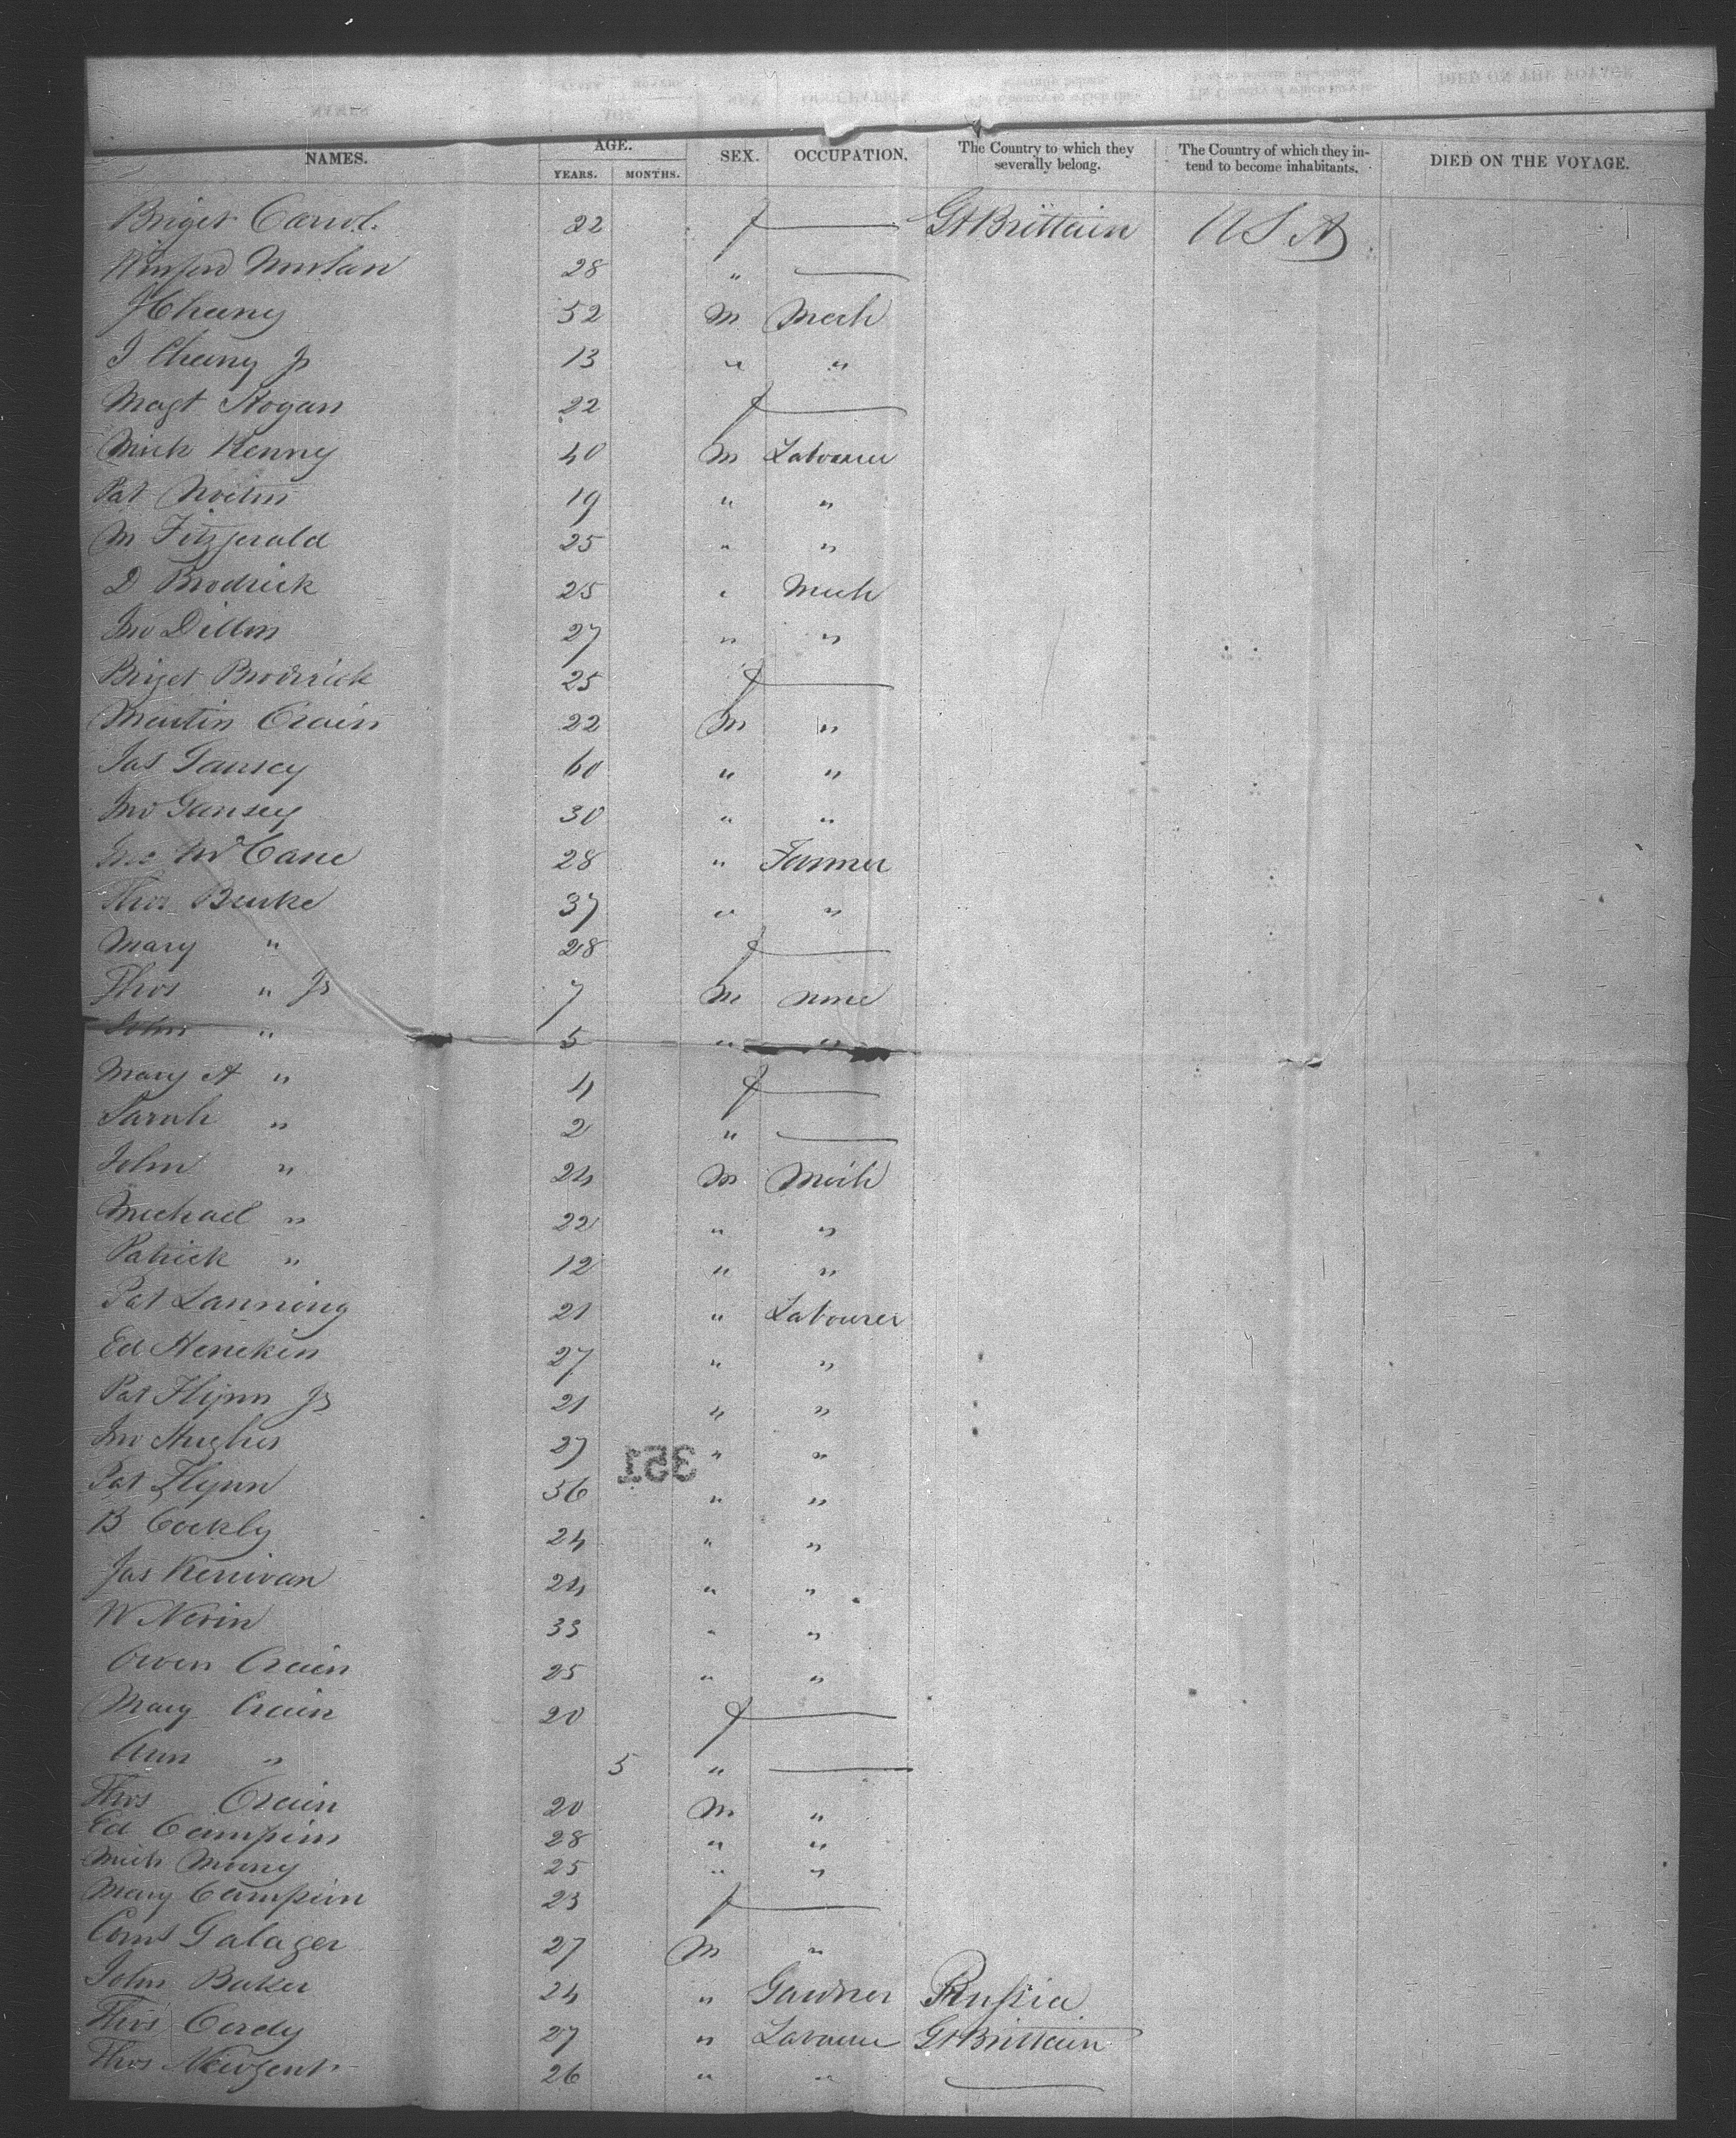 NAMES. AGE. YEARS. MONTHS. SEX. OCCUPATION. The Country to which they severally belong. The Country of which they intend to become inhabitants. DIED ON THE VOYAGE.
Briget Carrol 22 f — Gt Brittain U S A
28 " —
J Cheeny 52 M Mech
J Cheeny Jr 13 " "
Magt Hogan 22 f —
Mich Kenny 40 M Labourer
Pat 19 " "
M Fitzgerald 25 " "
D Brodrick 25 " Mech
Jno Dillon 27 " "
Briget Brodrick 25 f —
Martin Crain 22 M "
Jas Gansey 60 " "
Jno Gansey 30 " "
McCane 28 " Farmer
Thos Burke 37 " "
Mary " 28 f —
Thos " Jr 7 M none
John " 5 " "
Mary A " 4 f —
Sarah " 2 " —
John " 24 M Mech
Michael " 22 " "
Patrick " 12 " "
Pat Lanning 21 " Labourer
Ed Henekin 27 " "
Pat Flynn Jr 21 " "
Jno Hughes 27 " "
351
Pat Flynn 56 " "
B Cockly 24 " "
Jas Kerrivan 24 " "
W Nevin 33 " "
Owen Crain 25 " "
Mary Crain 20 f —
Ann " 5 " —
Thos Crain 20 M "
Ed Campion 28 " "
Mich 25 " "
Mary Campion 23 f —
Corns Galager 27 M "
John Baker 24 " Gardner Prussia
Thos Cordy 27 " Labourer Gt Brittain
Thos Newgent 26 " " —